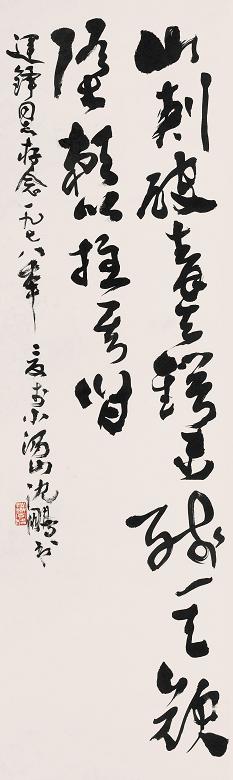 山刺破青天锷未残天欲
堕赖以拄其间
运锋同志存念一九七八年夏于小汤山沈鹏书